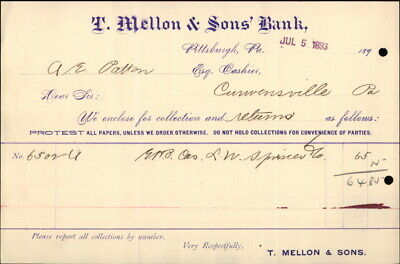 T. Mellon & Sons' Bank,
Pittsburgh, Pa. JUL 5 1893 189
A. E. Patton Esq. Cashier,
Dear Sir: Curwensville Pa
We enclose for collection and returns as follows:
PROTEST ALL PAPERS, UNLESS WE ORDER OTHERWISE. DO NOT HOLD COLLECTIONS FOR CONVENIENCE OF PARTIES.
No. 6502 Co. 65
15
64.85
Please report all collections by number.
Very Respectfully,
T. MELLON & SONS.